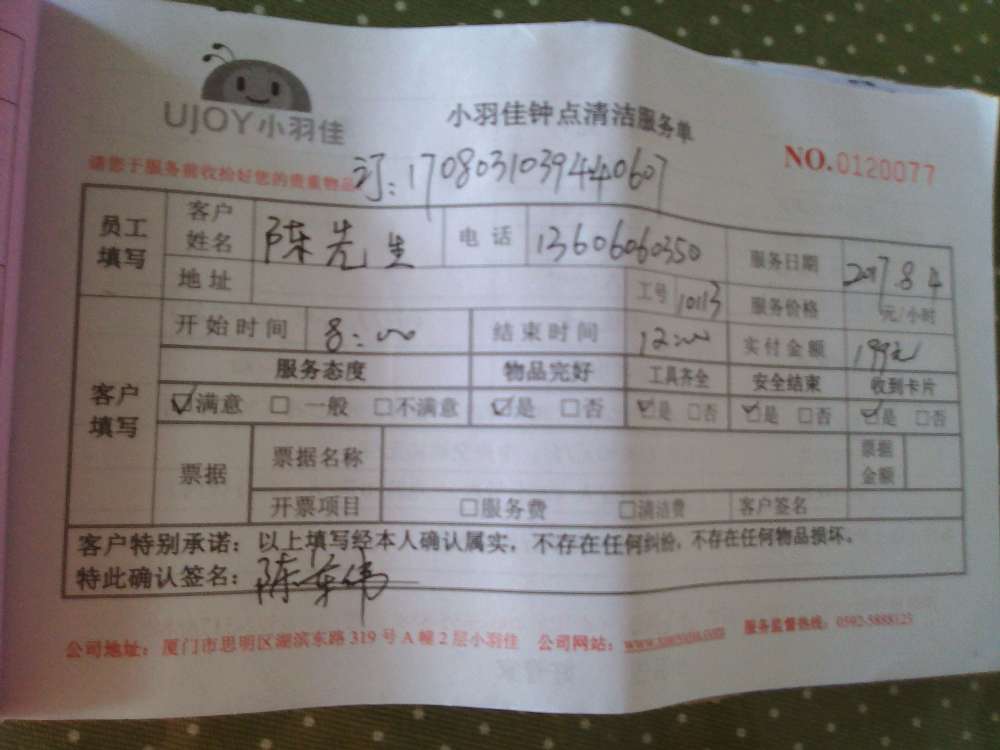 UJOY小羽佳
小羽佳钟点清洁服务单
NO.0120077
请您于服务前收拾好您的贵重物品
订:1708031039440607
员工填写 客户姓名 陈先生 电话 13606060350 服务日期 2017.8.4
地址 工号 10113 服务价格 元/小时
客户填写 开始时间 8:00 结束时间 12:00 实付金额 199元
服务态度 物品完好 工具齐全 安全结束 收到卡片
☑满意 □一般 □不满意 ☑是 □否 ☑是 □否 ☑是 □否 ☑是 □否
票据 票据名称 票据金额
开票项目 □服务费 □清洁费 客户签名
客户特别承诺:以上填写经本人确认属实,不存在任何纠纷,不存在任何物品损坏。
特此确认签名:陈荣伟
公司地址:厦门市思明区湖滨东路319号A幢2层小羽佳 公司网站: 服务监督热线:0592-5888123